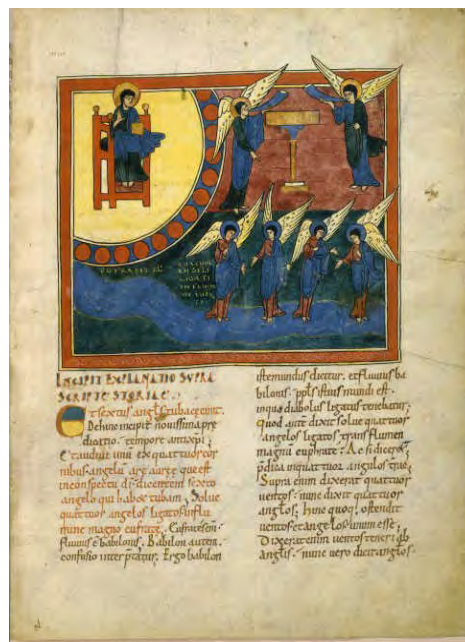 EUFRATES FL
QUATUOR
ANGELI
LIGATI
IN FLUM
INCIPIT EXPLANATIO SUPRA
SCRIPTE STORIAE.
Et sextus angls tuba cecinit.
De hinc incipit novissima pre
dicatio. tempore antxpi;
Et audivit unum ex quattuor cor
nibus angelum arę auręe que est
in conspectu di dicentem sexto
angelo qui habet tubam; Solve
quattuor angelos ligatos in flu
mine magno eufrate. Eufratesem
fluvius ē babilonis. Babilon autem.
confusio interpretatur. Ergo babilon
iste mundus dicitur. et fluvius ba
bilonis. ppls istius mundi est.
in quo diabolus ligatus tenebatur;
Quod autē dixit solve quattuor
angelos ligatos trans flumen
magnū euphrate. Ac si diceret.
p̄dica in quattuor angulos
Supra enim dixerat quattuor
ventos. nunc dixit quattuor
anglos; hinc quoq. ostendit
ventos et angelos unum esse;
Dixerat enim ventos teneri ab
anglis. nunc vero dicit anglos.